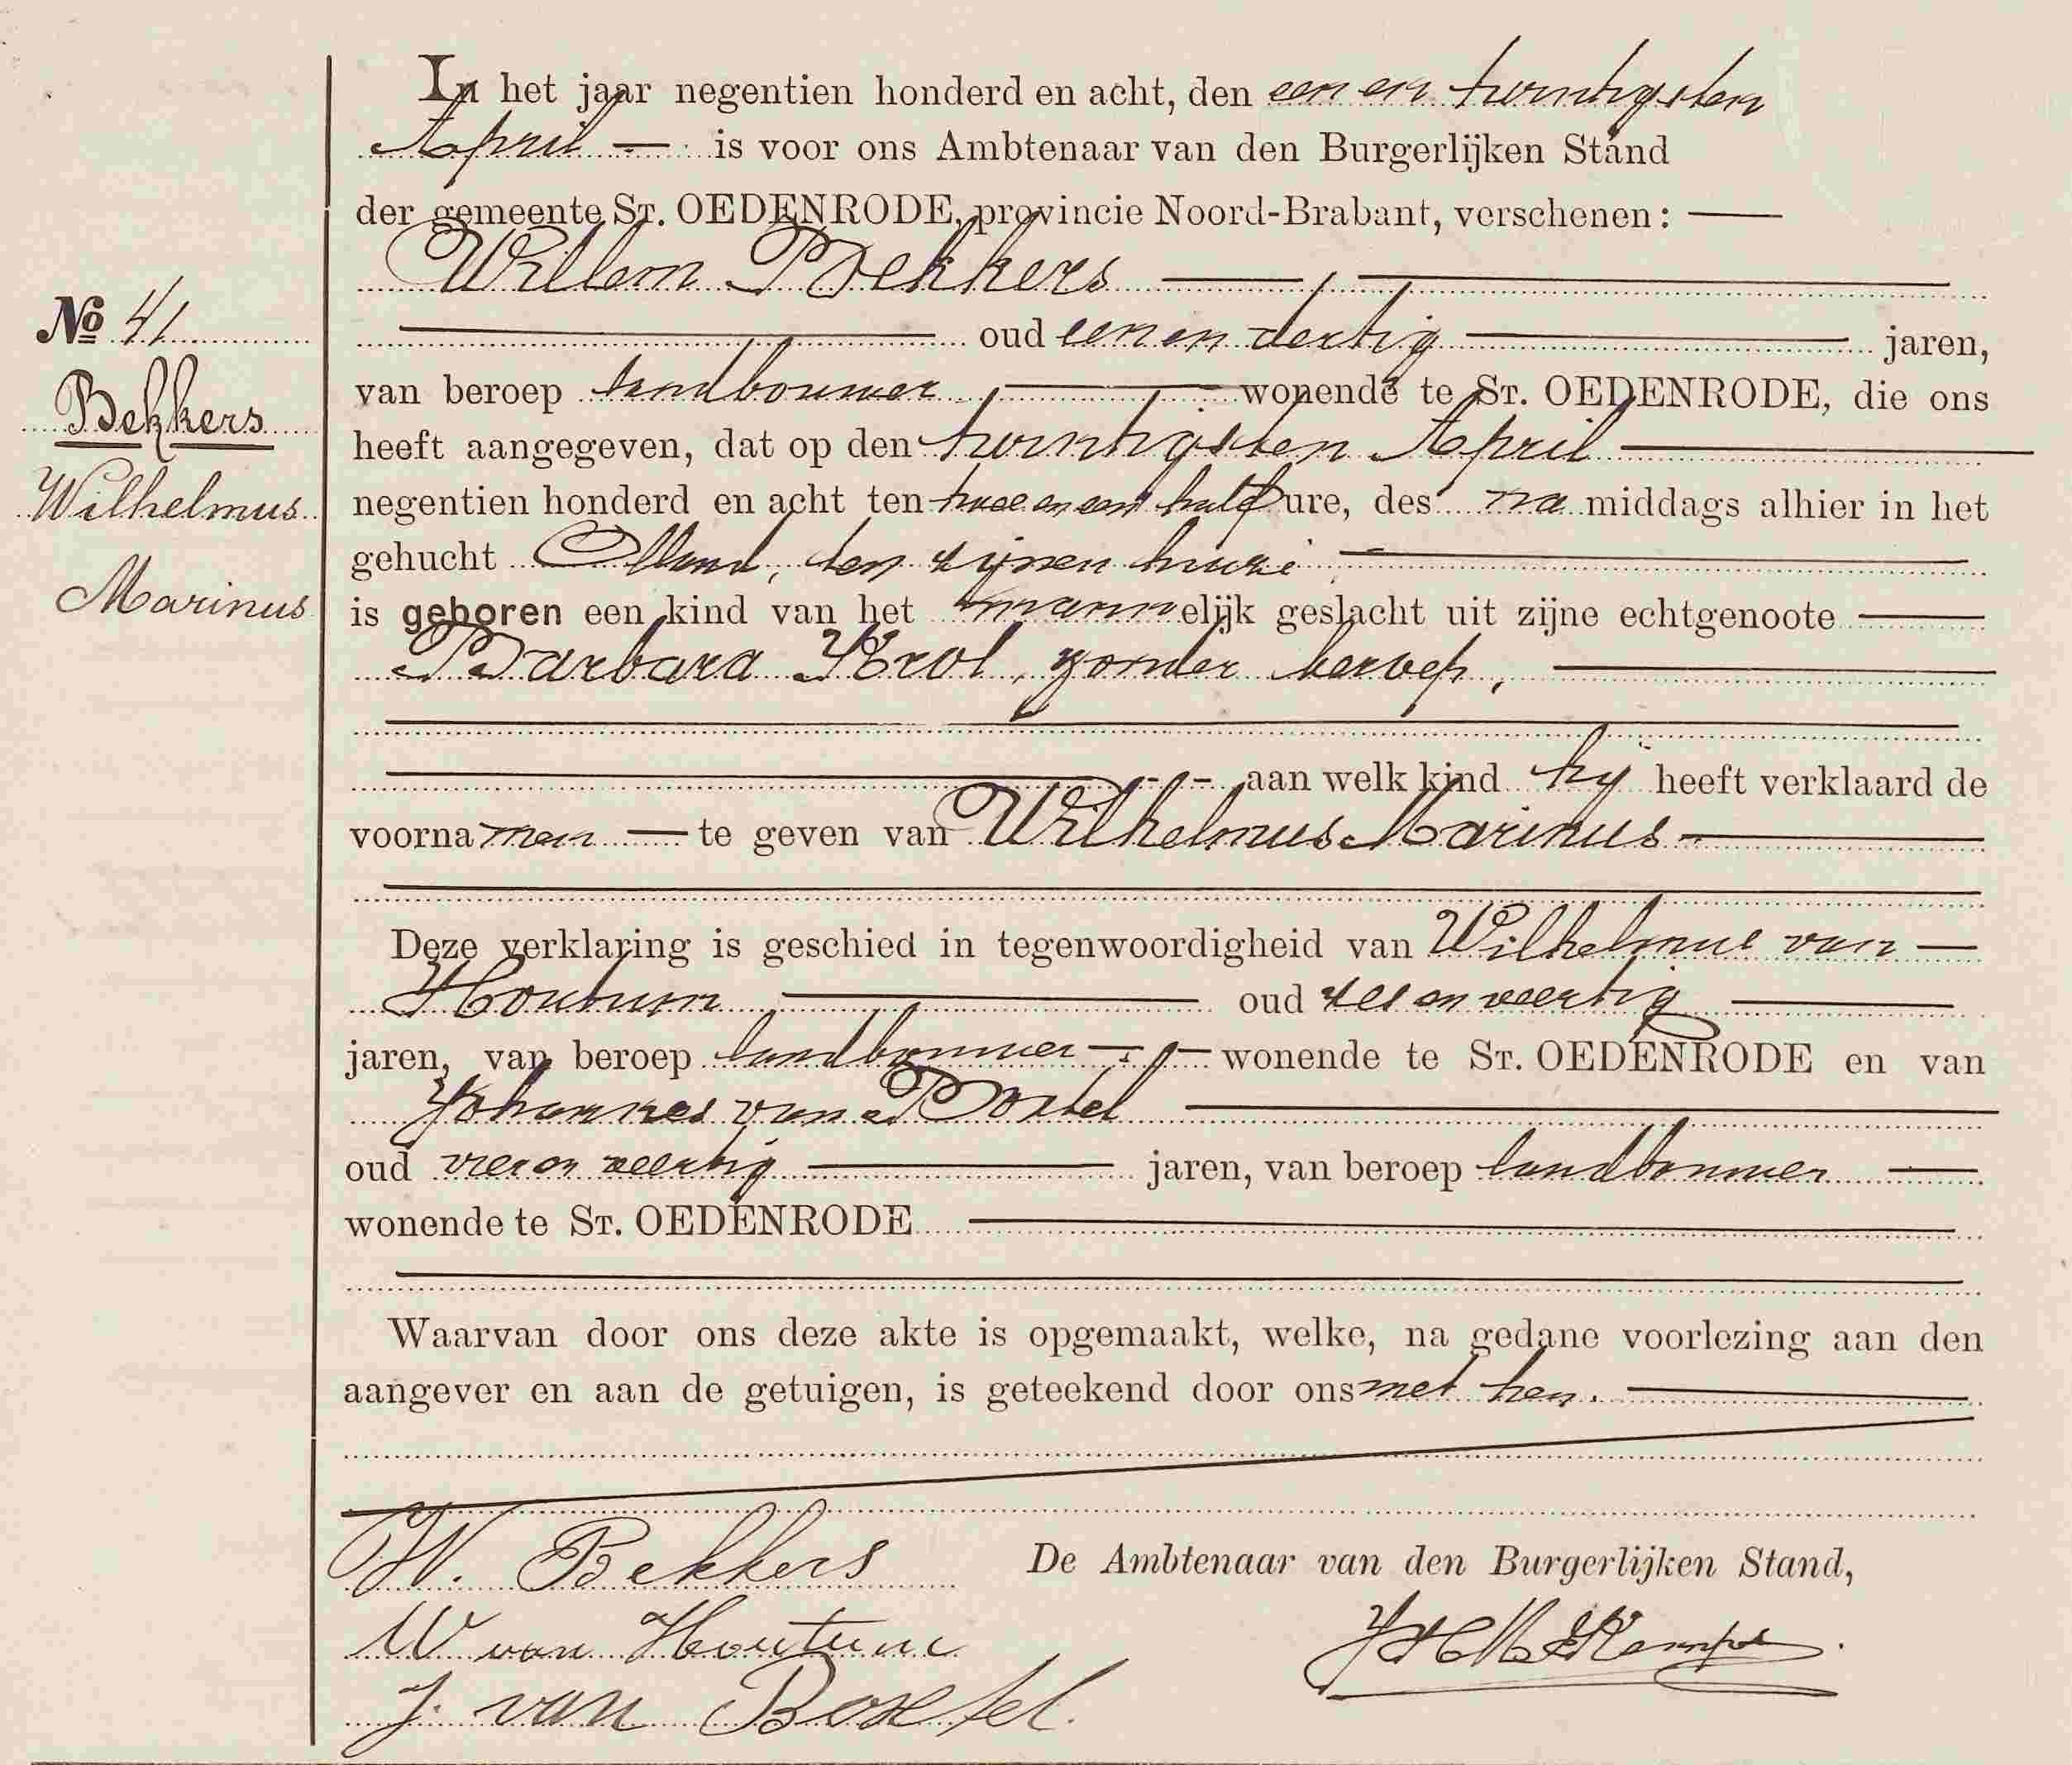 In het jaar negentien honderd en acht, den een en twintigsten
April — is voor ons Ambtenaar van den Burgerlijken Stand
der gemeente St. OEDENRODE, provincie Noord-Brabant, verschenen: —
Willem Bekkers
oud een en dertig jaren,
No 41
Bekkers
Wilhelmus
Marinus
van beroep landbouwer, wonende te St. OEDENRODE, die ons
heeft aangegeven, dat op den twintigsten April
negentien honderd en acht ten twee en een half ure, des na middags alhier in het
gehucht Olland, ten zijnen huize
is geboren een kind van het mannelijk geslacht uit zijne echtgenoote
Barbara Krol, zonder beroep,
aan welk kind hij heeft verklaard de
voornamen — te geven van Wilhelmus Marinus
Deze verklaring is geschied in tegenwoordigheid van Wilhelmus van
Houtum oud zes en veertig
jaren, van beroep landbouwer wonende te St. OEDENRODE en van
Johannes van Boxtel
oud vier en veertig jaren, van beroep landbouwer
wonende te St. OEDENRODE
Waarvan door ons deze akte is opgemaakt, welke, na gedane voorlezing aan den
aangever en aan de getuigen, is geteekend door ons met hen.
W. Bekkers
De Ambtenaar van den Burgerlijken Stand,
W van Houtum
J. van Boxtel.